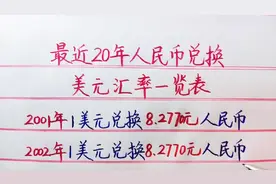 最近20年人民币兑换
美元汇率一览表
2001年1美元兑换8.2770元人民币
2002年1美元兑换8.2770元人民币